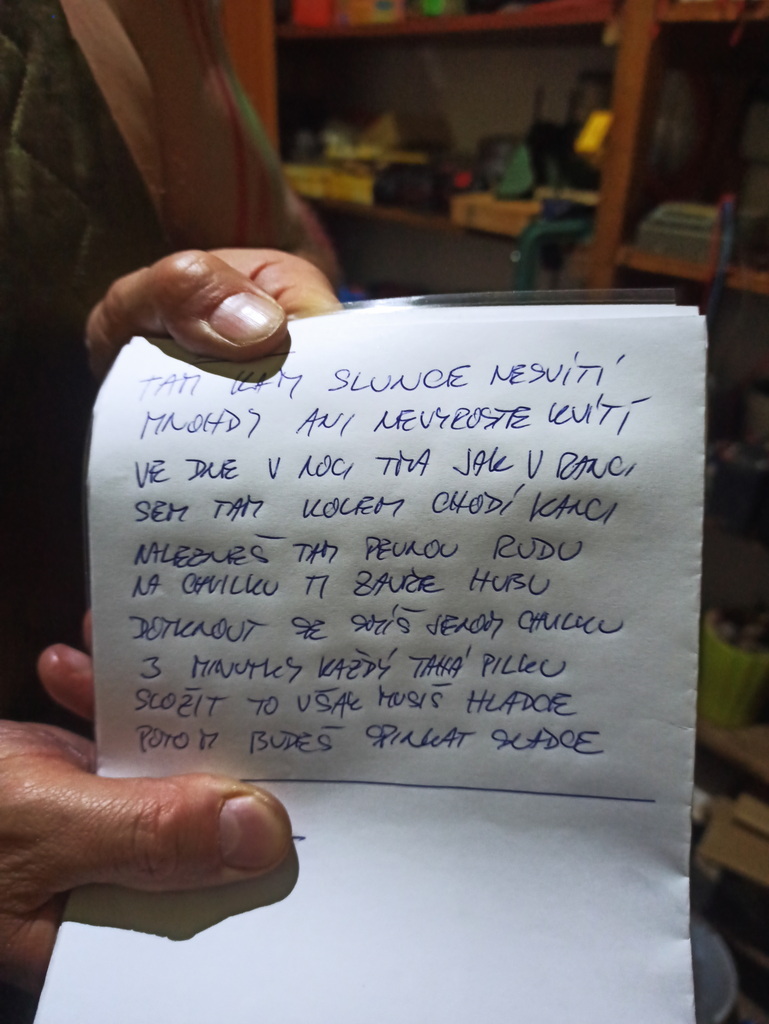 TAM KAM SLUNCE NESVÍTÍ
MNOHDY ANI NEVYROSTE KVÍTÍ
VE DNE V NOCI TMA JAK V RANCI
SEM TAM KOLEM CHODÍ KANCI
NALEZNEŠ TAM PEVNOU RUDU
NA CHVILKU TI ZAVŘE HUBU
DOTKNOUT SE SMÍŠ JENOM CHVILKU
3 MINUTKY KAŽDÝ TAHÁ PILKU
SLOŽIT TO VŠAK MUSIŠ HLADCE
POTOM BUDEŠ SPINKAT SLADCE